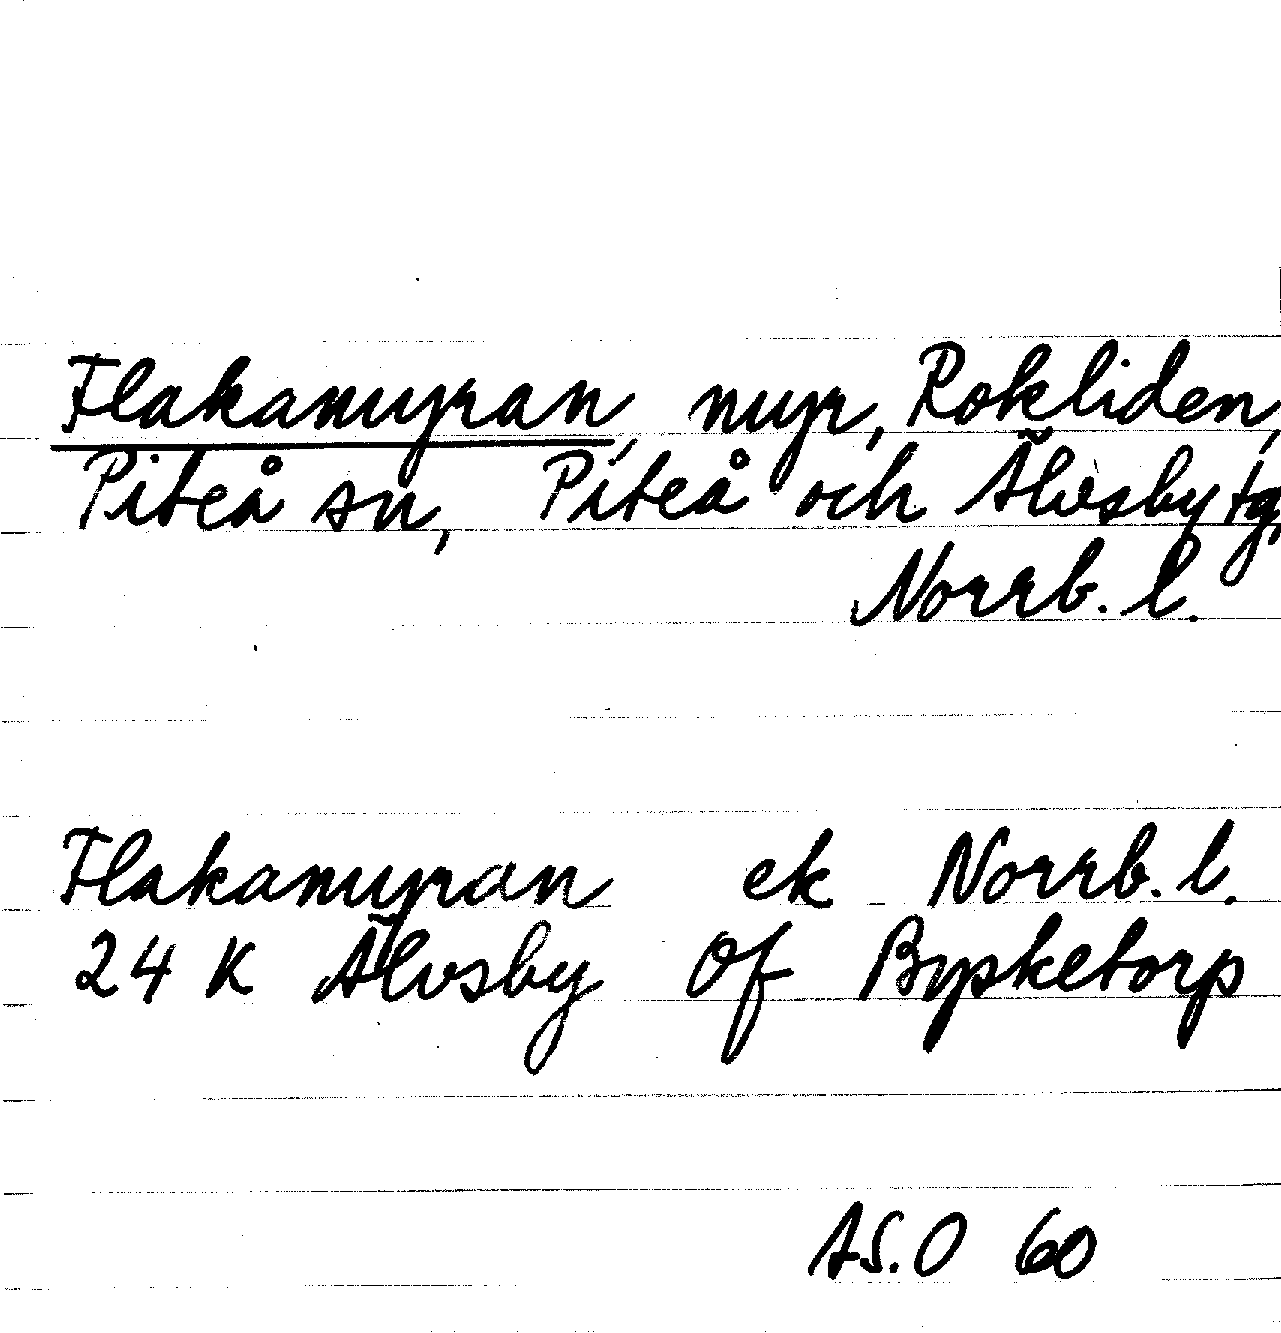 Flakamyran, myr, Rokliden,
Piteå sn, Piteå och Älvsby tg,
Norrb. l.
Flakamyran ek Norrb. l.
24 K Älvsby Of Bysketorp
AS.O 60